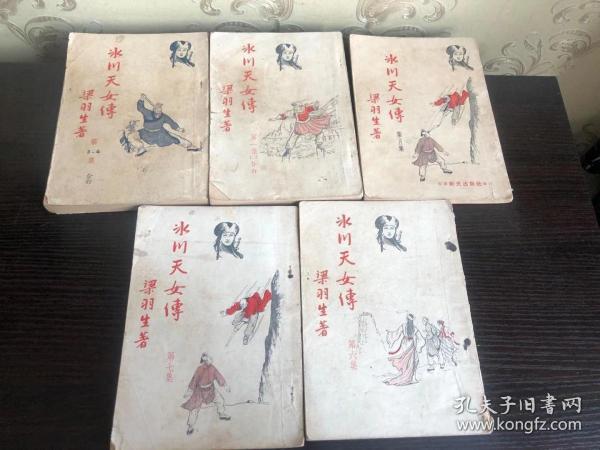 冰川天女傳
梁羽生著
第
集
冰川天女傳
梁羽生著
冰川天女傳
梁羽生著
第五集
冰川天女傳
梁羽生著
第七集
冰川天女傳
梁羽生著
第六集
孔夫子旧书网
www.kongfz.com